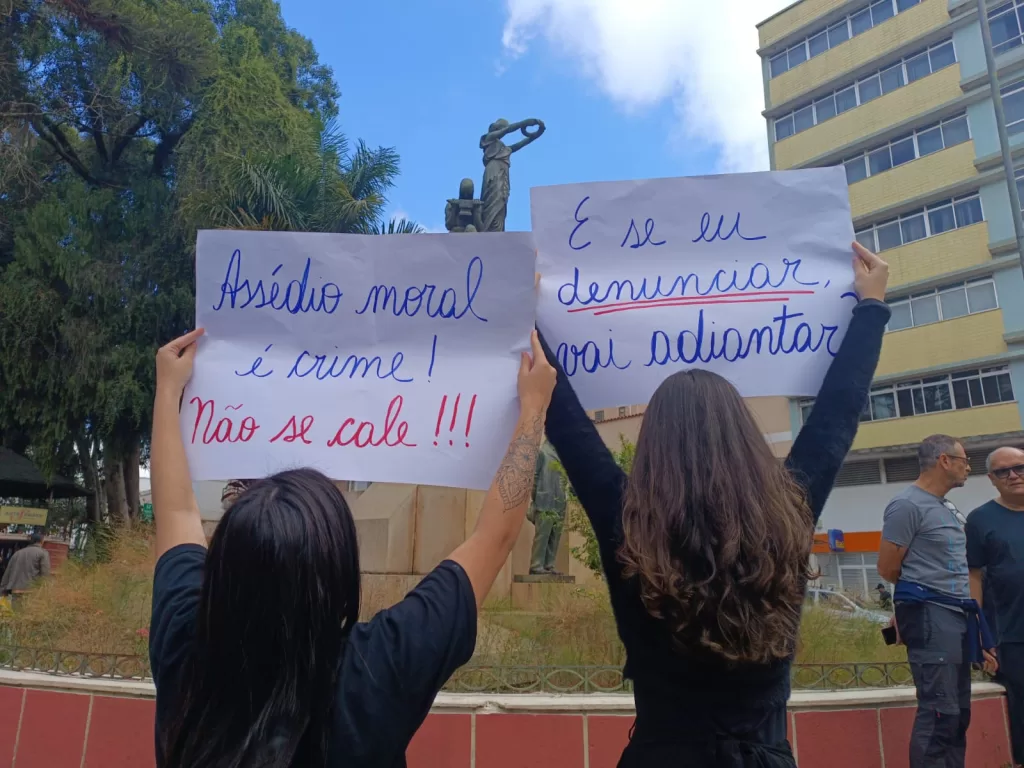 Assédio moral
é crime!
Não se cale !!!
E se eu
denunciar,
vai adiantar